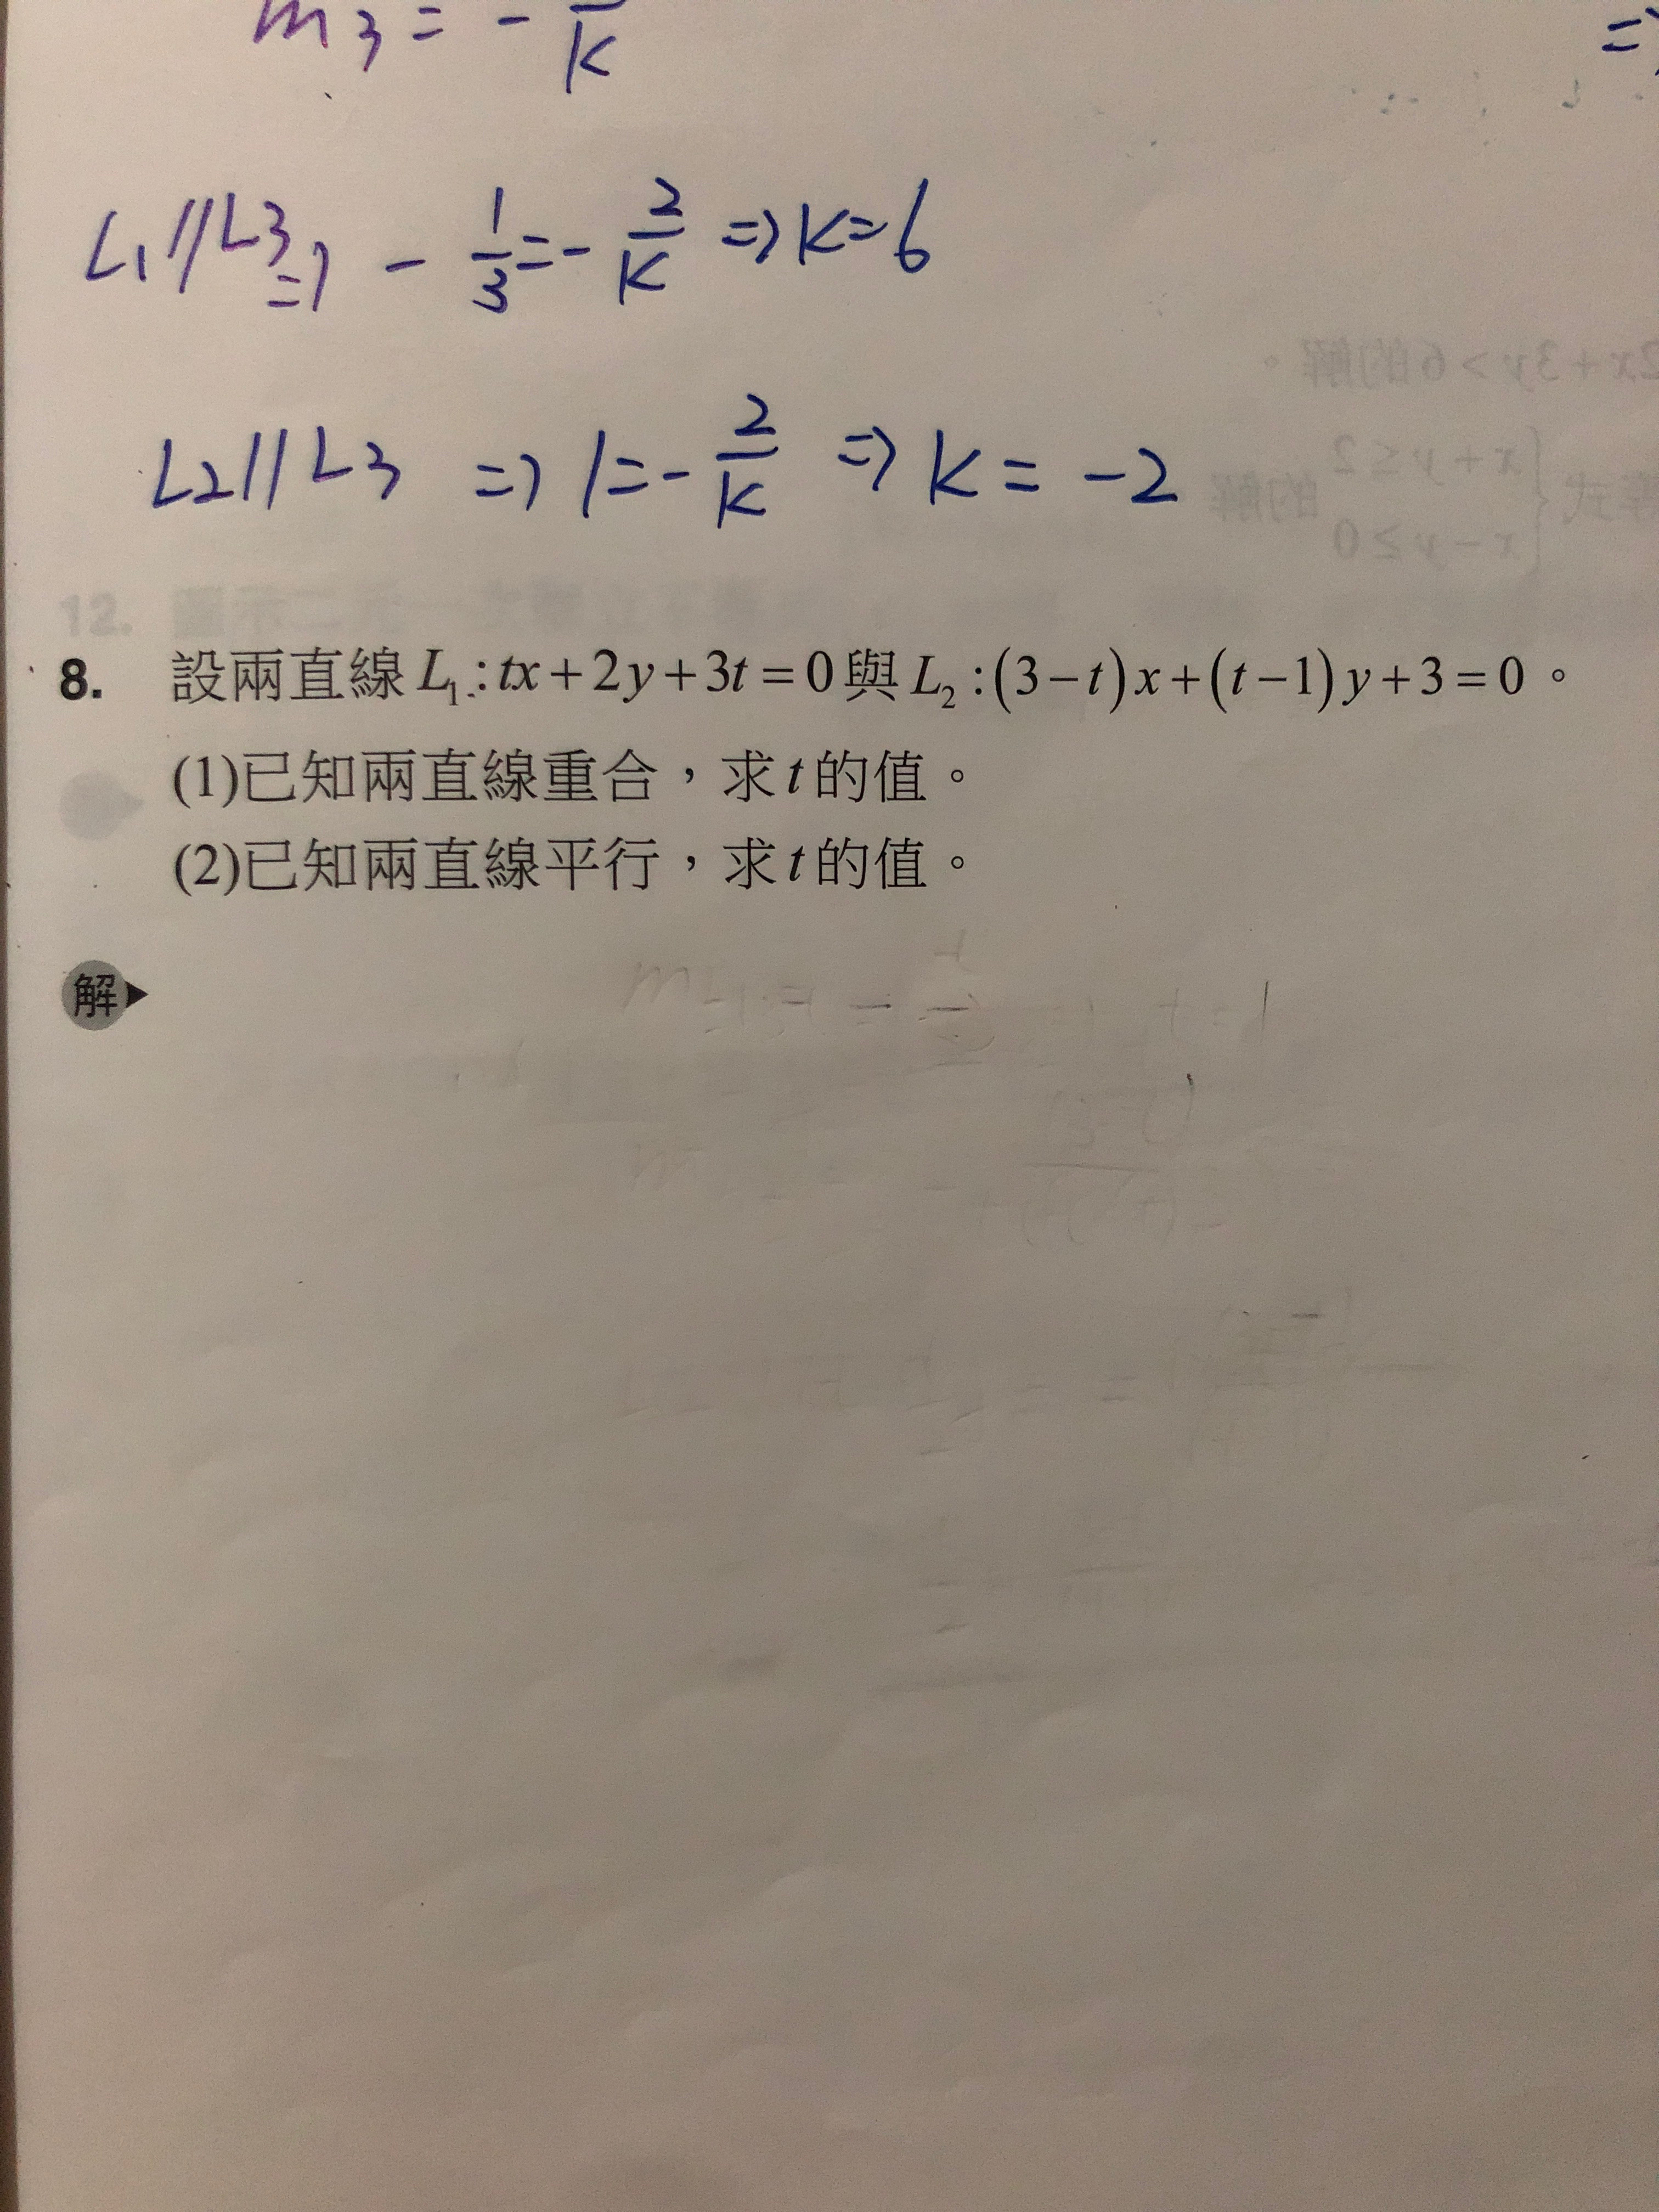 m3 = - /K
=>
L1 // L3 => - 1/3 = - 2/K => K = 6
L2 // L3 => 1 = - 2/K => K = -2
8. 設兩直線 L₁ : tx + 2y + 3t = 0 與 L₂ : (3 − t) x + (t − 1) y + 3 = 0 。
(1)已知兩直線重合，求 t 的值。
(2)已知兩直線平行，求 t 的值。
解